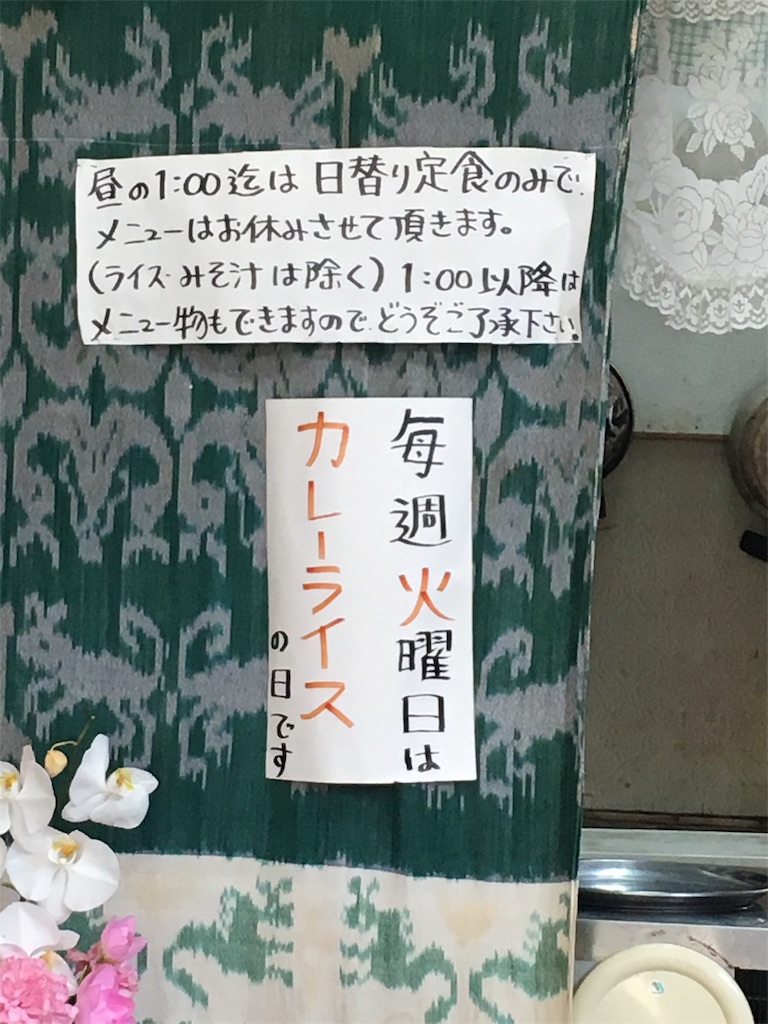 昼の1:00迄は 日替り定食のみで.
メニューはお休みさせて頂きます。
(ライス・みそ汁は除く) 1:00以降は
メニュー物もできますので.どうぞご了承下さい。
毎週火曜日は
カレーライス
の日です